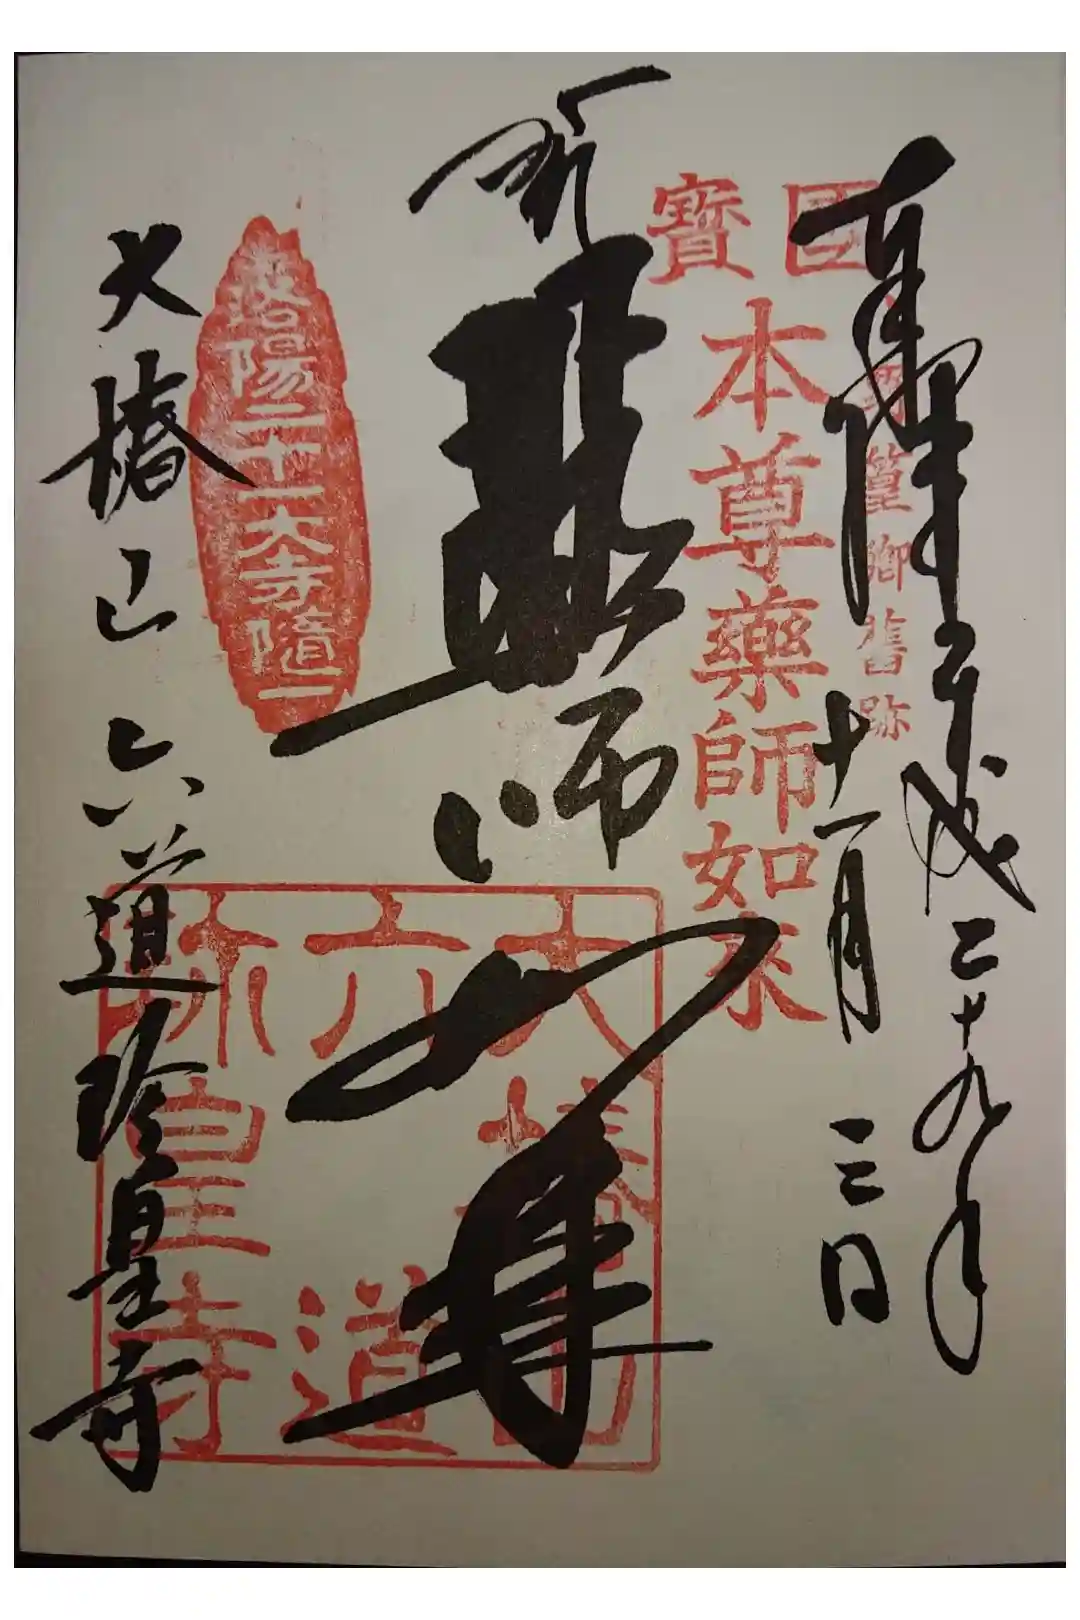 奉拝 平成二十九年
十一月三日
國寶
篁卿舊跡
本尊薬師如来
薬師尊
洛陽二十一大寺随一
大椿山 六道珍皇寺
大椿山
六道
珍皇寺